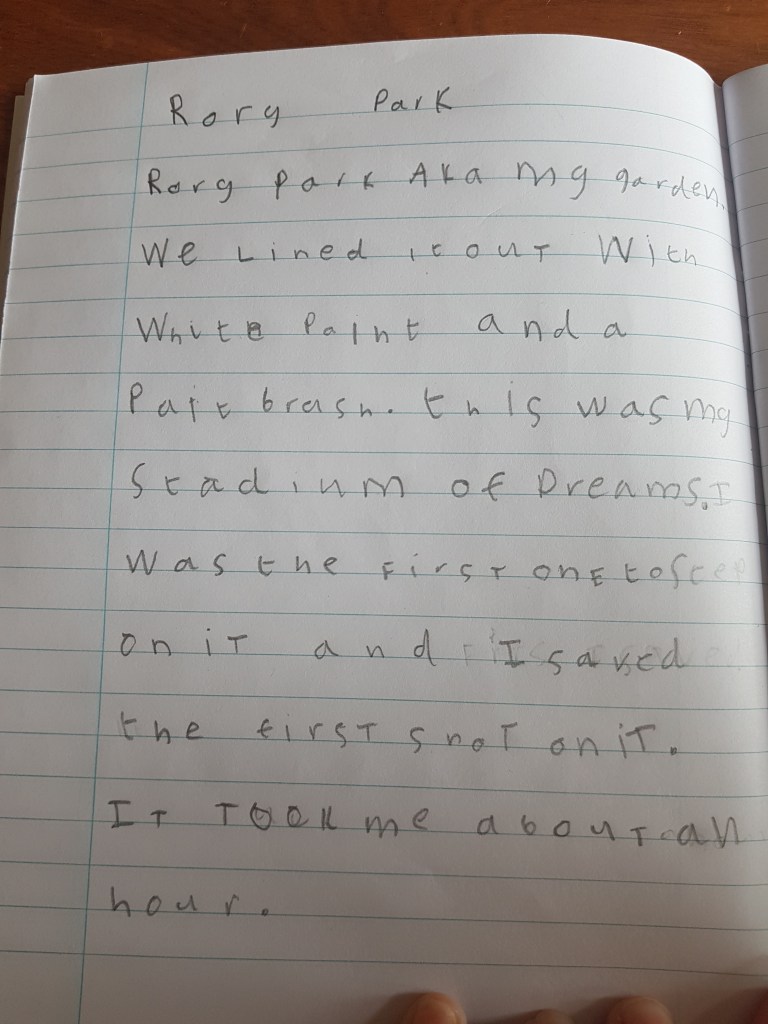 Rory Park
Rory park AKa my garden.
We Lined it out With
White Paint and a
Pait brash. this was my
Stadium of Dreams. I
Was the first one to step
on it and I saved
the first shot on it.
It Took me about an
hour.